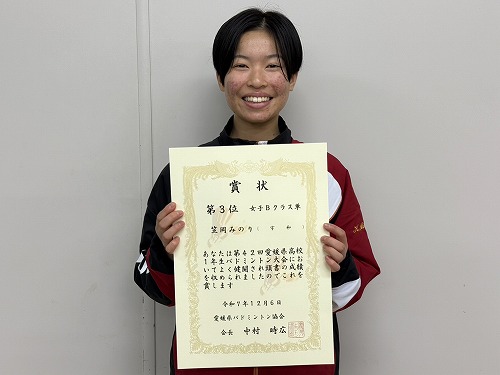 賞状
第3位 女子Bクラス単
笠岡みのり(宇和)
あなたは第42回愛媛県高校
1年生バドミントン大会に
おいてよく健闘され頭書の成績
を収められましたのでこれを
賞します
令和7年12月6日
愛媛県バドミントン協会
会長 中村 時広